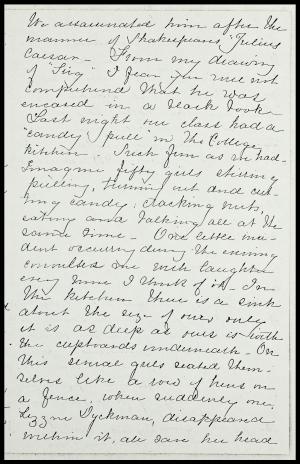 We assassinated him after the
manner of Shakespeare's "Julius
Caesar". From my drawing
of "Trig" I fear you will not
comprehend that he was
encased in a black book.
Last night our class had a
"candy pull" in the College
kitchen. Such fun as we had.
Imagine fifty girls stirring
pulling, turning out and cut-
ting candy; cracking nuts,
eating and talking all at the
same time. One little inci-
dent occurring during the evening
convulses me with laughter
every time I think of it. In
the kitchen there is a sink
about the size of ours only
it is as deep as ours is with
the cupboards underneath. On
this several girls seated them-
selves like a row of hens on
a fence, when suddenly one,
Lizzie Dyckman, disappeared
within it, all save her head